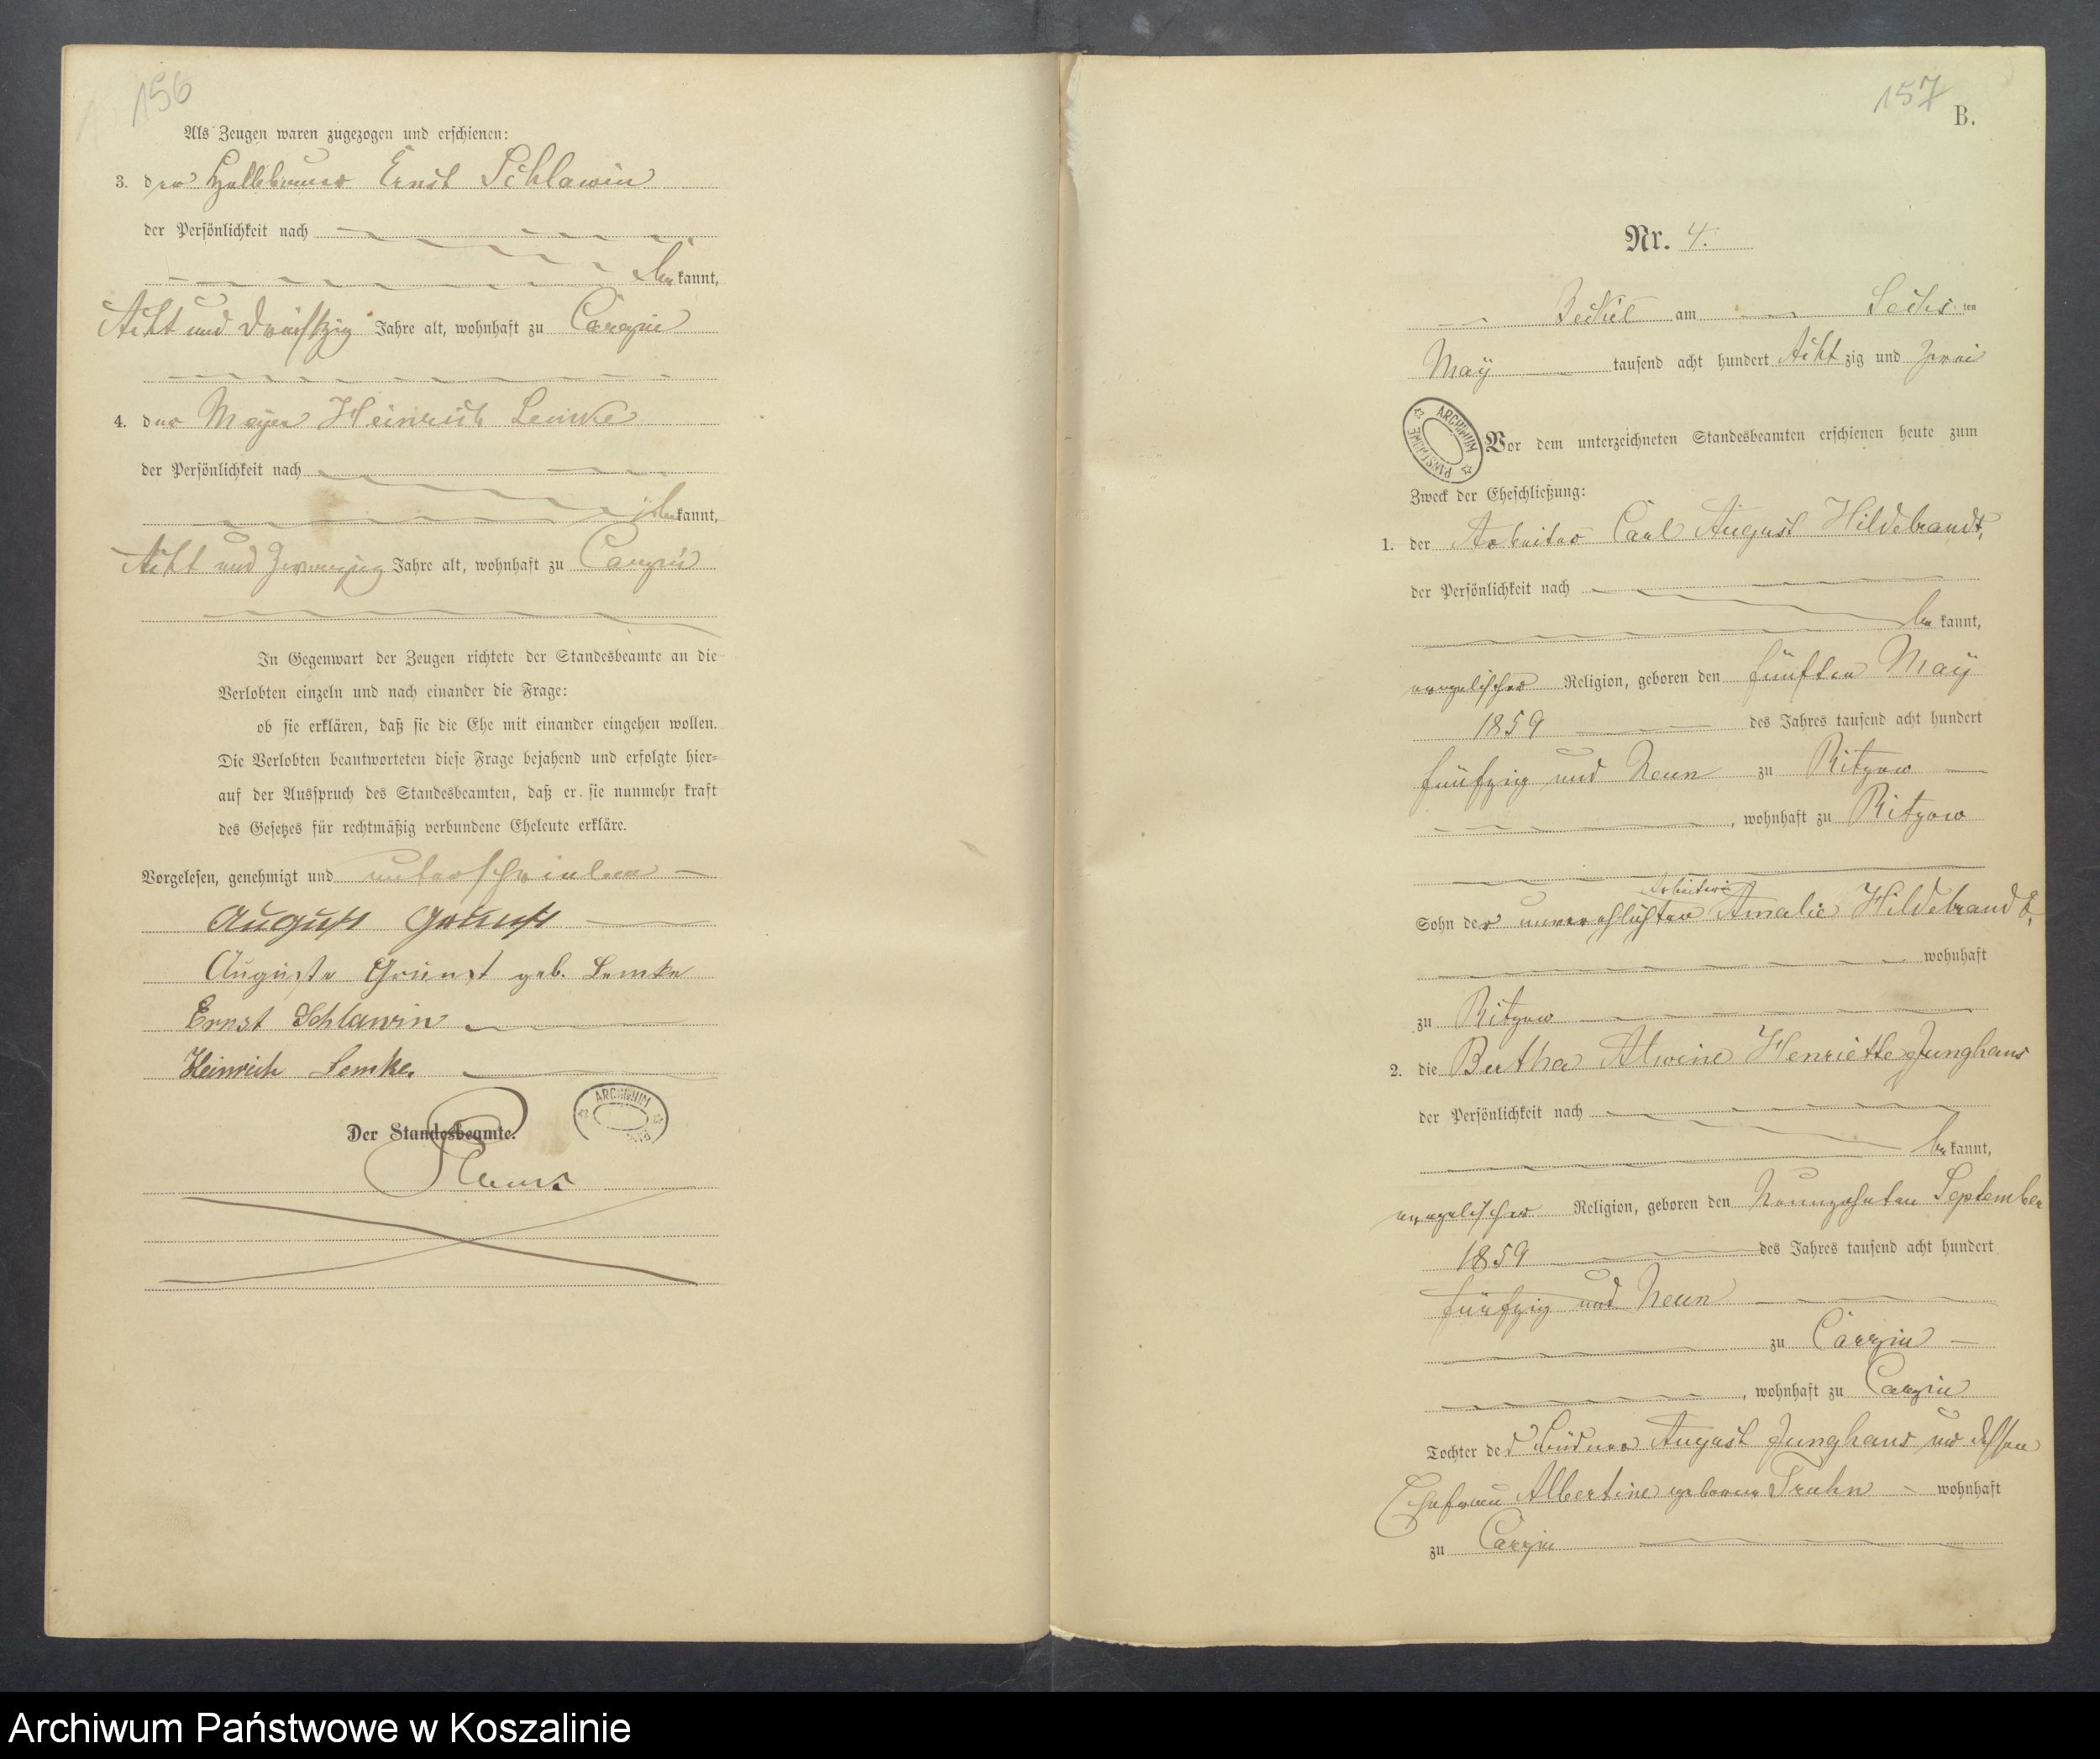 156
Als Zeugen waren zugezogen und erschienen:
3. der Halbbauer Ernst Schlawin
der Persönlichkeit nach
be kannt,
Acht und dreißig Jahre alt, wohnhaft zu Carzin
4. der Meyer Heinrich Lemke
der Persönlichkeit nach
be kannt,
Acht und zwanzig Jahre alt, wohnhaft zu Carzin
In Gegenwart der Zeugen richtete der Standesbeamte an die
Verlobten einzeln und nach einander die Frage:
ob sie erklären, daß sie die Ehe mit einander eingehen wollen.
Die Verlobten beantworteten diese Frage bejahend und erfolgte hier-
auf der Ausspruch des Standesbeamten, daß er sie nunmehr kraft
des Gesetzes für rechtmäßig verbundene Eheleute erkläre.
Vorgelesen, genehmigt und unterschrieben
August
Auguste Grünst geb. Lemke
Ernst Schlawin
Heinrich Lemke.
Der Standesbeamte.
ARCHIWUM
157
B.
Nr. 4.
am Sechs ten
May tausend acht hundert Acht zig und zwei
ARCHIWUM PAŃSTWOWE
Vor dem unterzeichneten Standesbeamten erschienen heute zum
Zweck der Eheschließung:
1. der Arbeiter Carl August Hildebrandt,
der Persönlichkeit nach
be kannt,
evangelischer Religion, geboren den fünften May
1859 des Jahres tausend acht hundert
fünfzig und Neun zu Ritzow
, wohnhaft zu Ritzow
Arbeiterin
Sohn der unverehlichten Amalie Hildebrandt,
wohnhaft
zu Ritzow
2. die Bertha Alwine Henriette Junghans
der Persönlichkeit nach
be kannt,
evangelischer Religion, geboren den Neunzehnten September
1859 des Jahres tausend acht hundert
fünfzig und Neun
zu Carzin
, wohnhaft zu Carzin
Tochter des Büdner August Junghans und dessen
Ehefrau Albertine geborene Truhn wohnhaft
zu Carzin
Archiwum Państwowe w Koszalinie